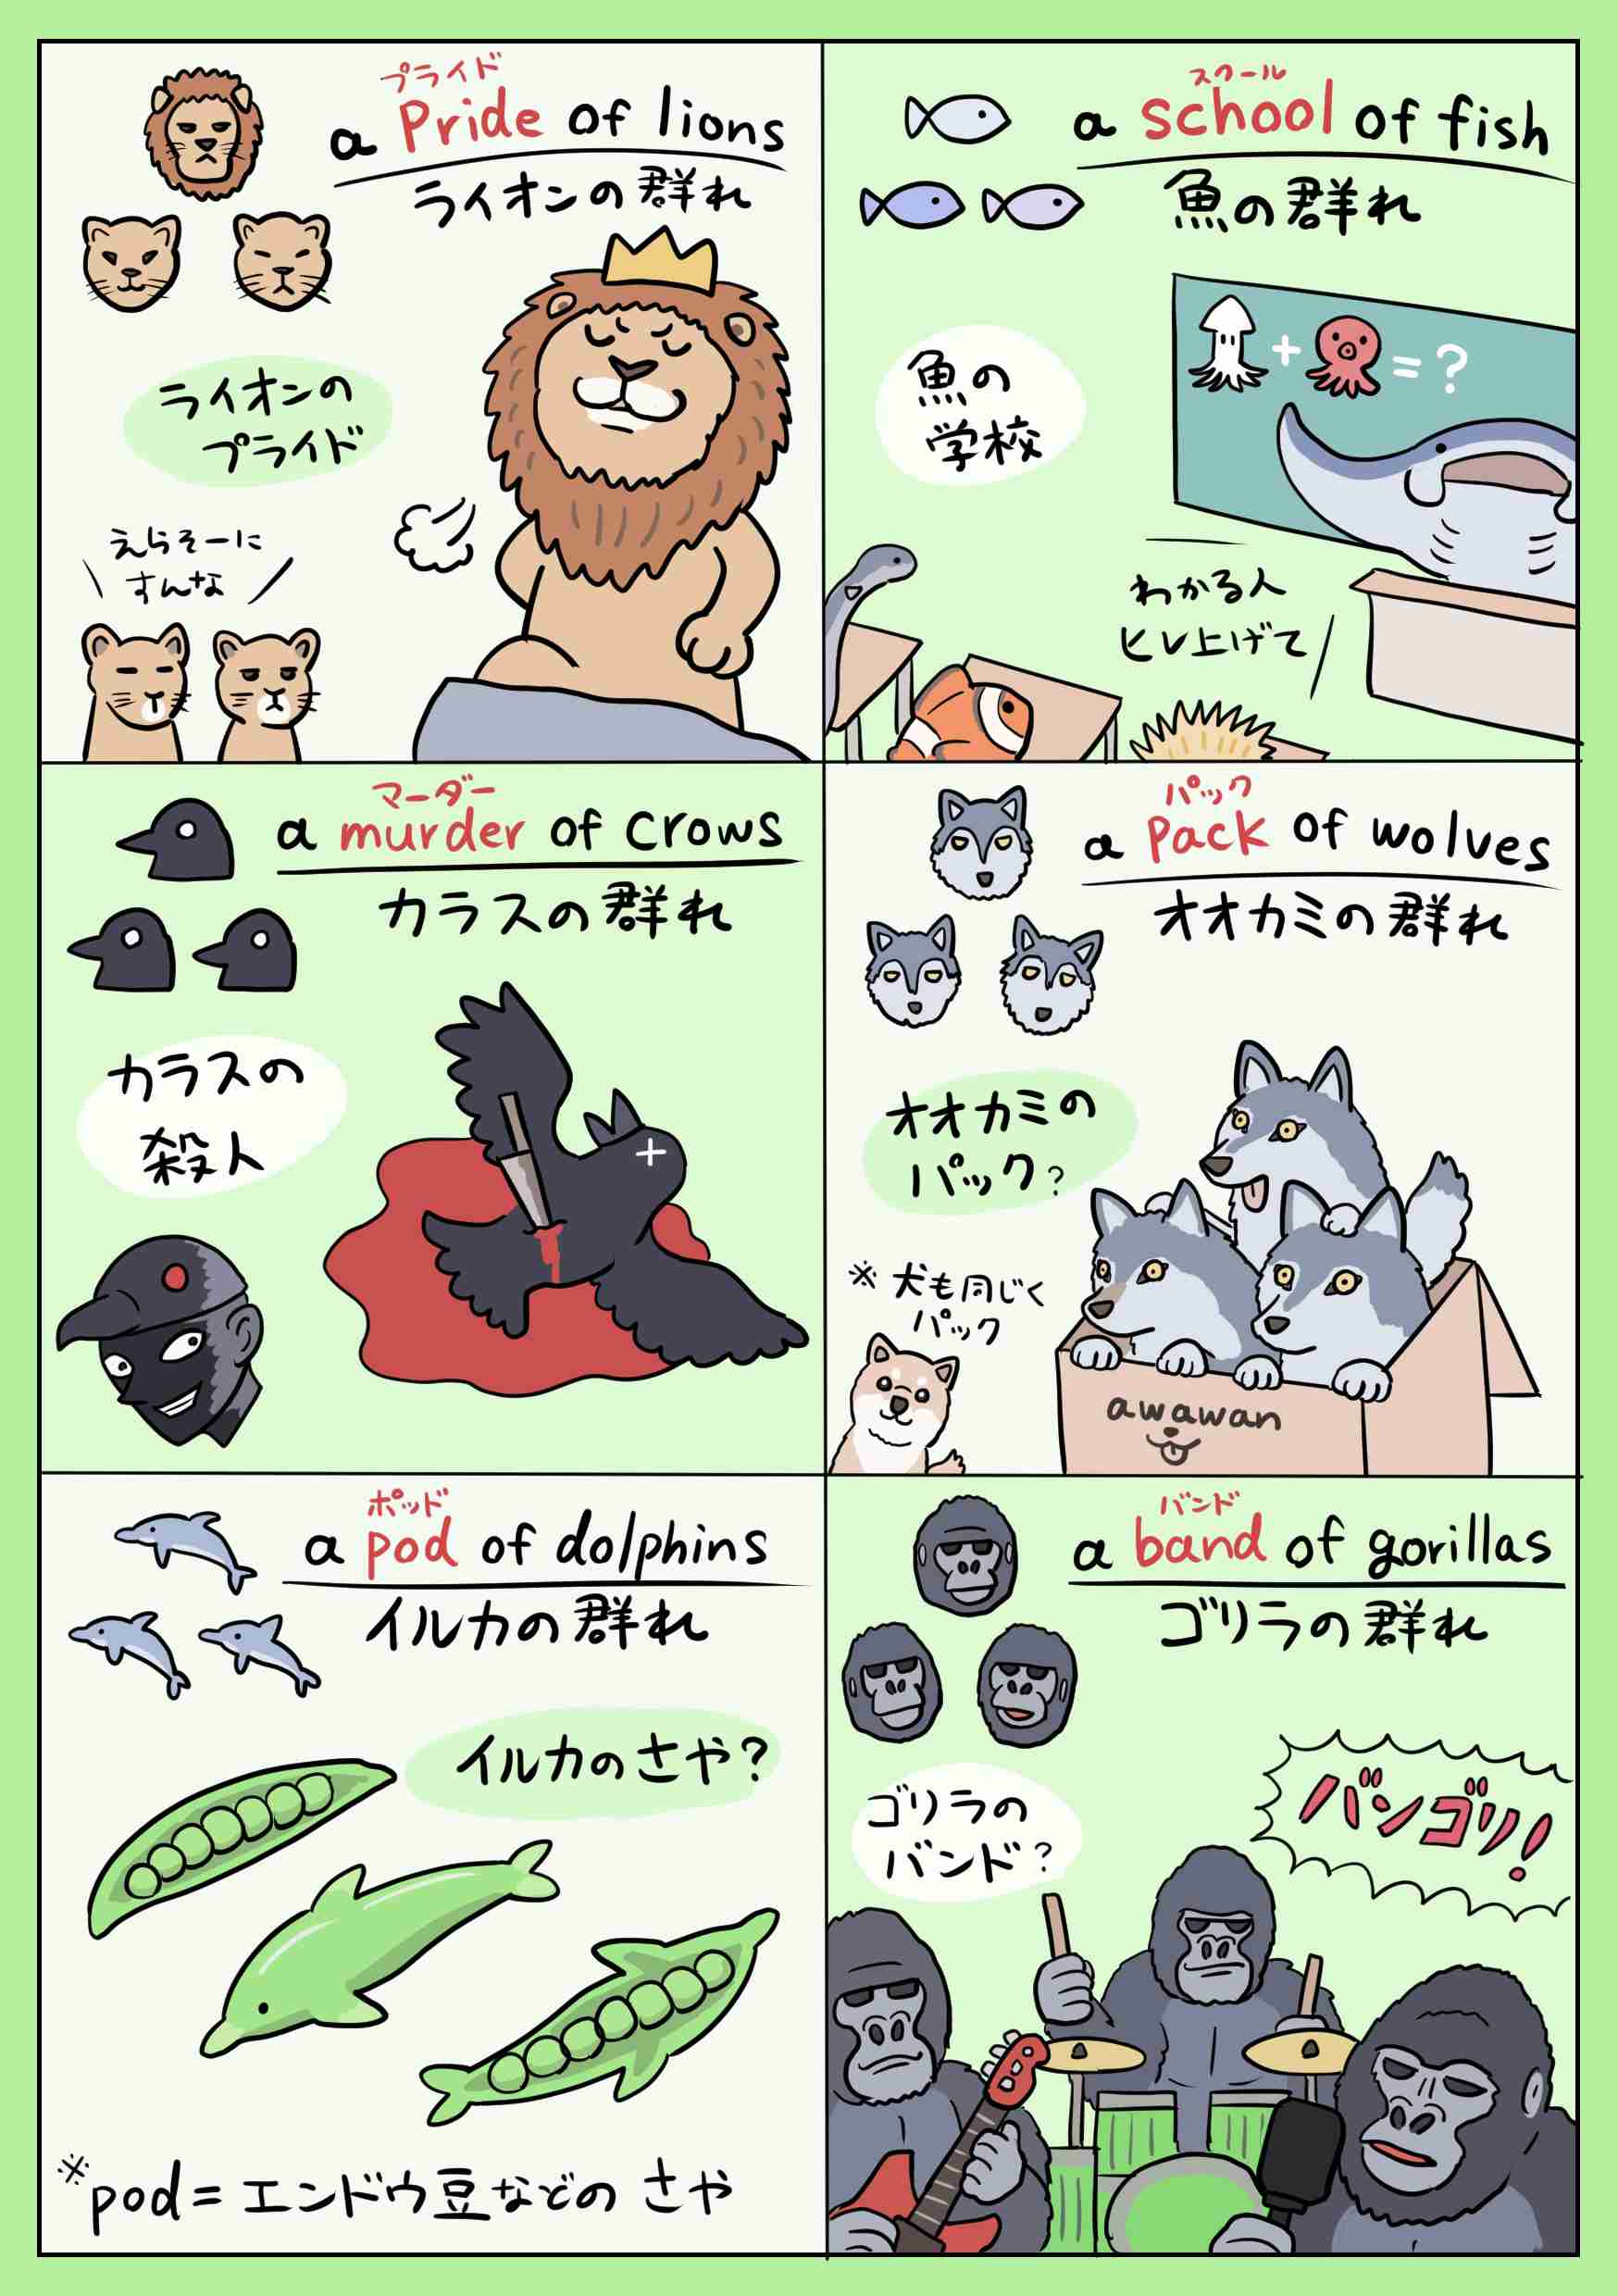 プライド
a Pride of lions
ライオンの群れ
ライオンの
プライド
えらそーに
すんな
スクール
a school of fish
魚の群れ
+ = ?
魚の
学校
わかる人
ヒレ上げて
マーダー
a murder of crows
カラスの群れ
カラスの
殺人
パック
a pack of wolves
オオカミの群れ
オオカミの
パック?
※ 犬も同じく
パック
awawan
ポッド
a pod of dolphins
イルカの群れ
イルカのさや?
※pod=エンドウ豆などの さや
バンド
a band of gorillas
ゴリラの群れ
ゴリラの
バンド?
バンゴリ!